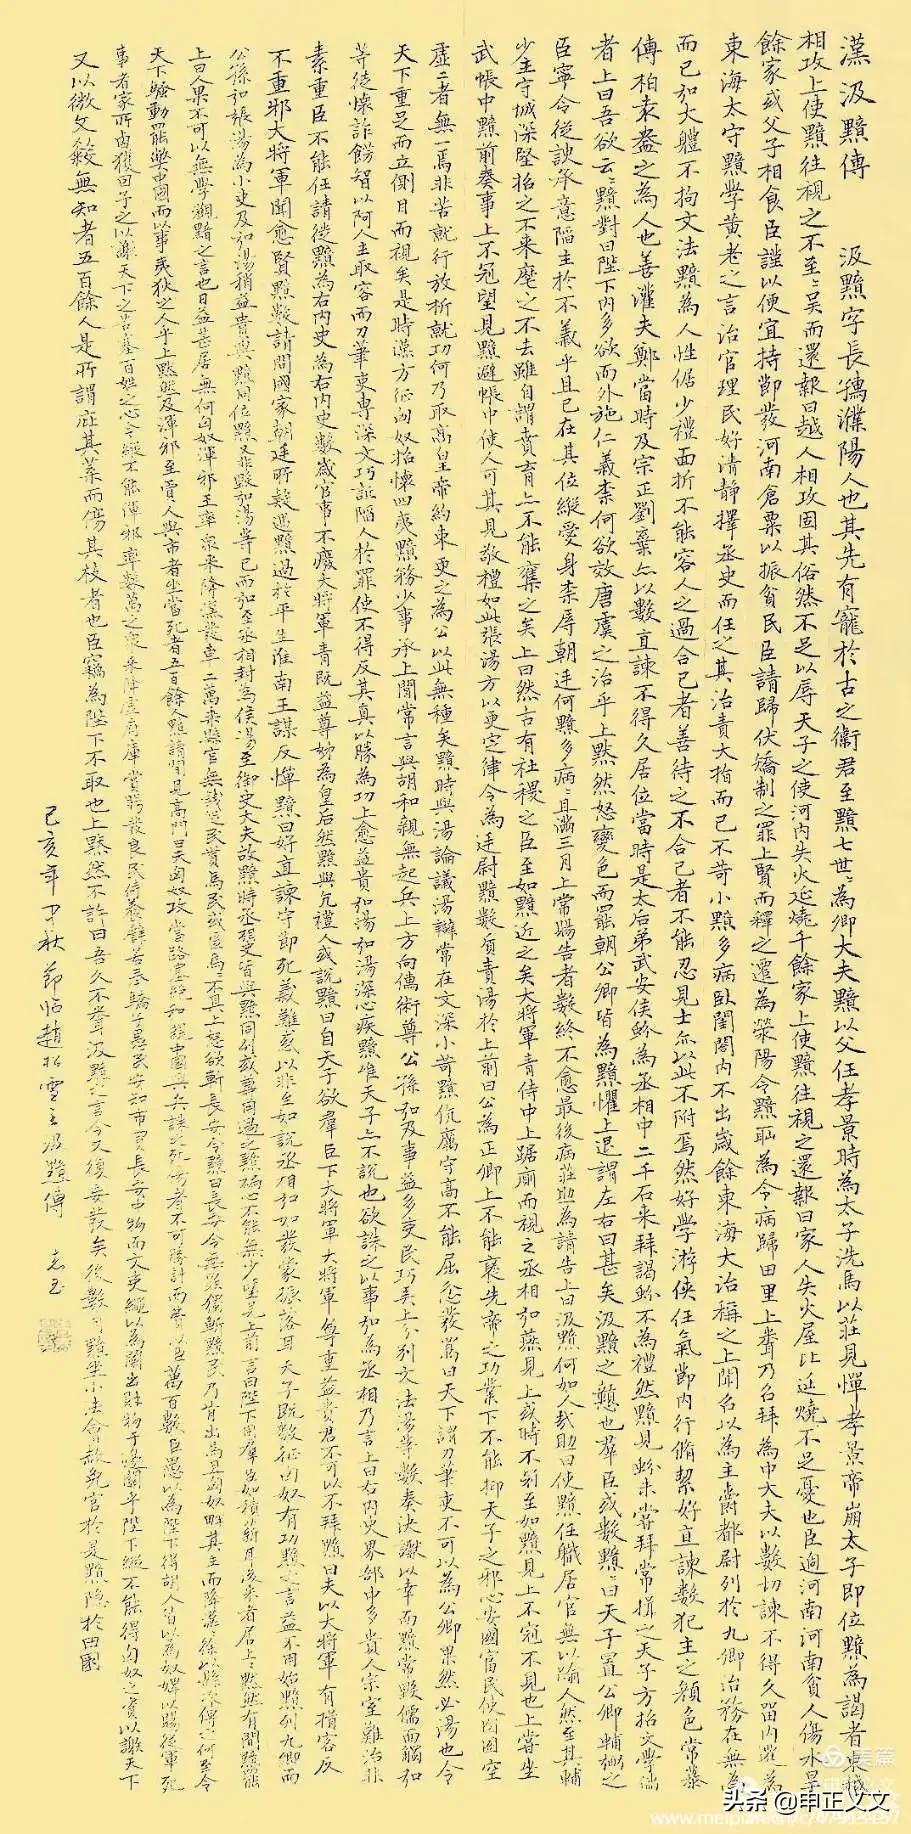 漢汲黯傳 汲黯字長孺濮陽人也其先有寵於古之衛君至黯七世世為卿大夫黯以父任孝景時為太子洗馬以莊見憚孝景帝崩太子即位黯為謁者東越
相攻上使黯往視之不至至吳而還報曰越人相攻固其俗然不足以辱天子之使河內失火延燒千餘家上使黯往視之還報曰家人失火屋比延燒不足憂也臣過河南河南貧人傷水旱
餘家或父子相食臣謹以便宜持節發河南倉粟以振貧民臣請歸伏矯制之罪上賢而釋之遷為滎陽令黯恥為令病歸田里上聞乃召拜為中大夫以數切諫不得久留內遷為
東海太守黯學黃老之言治官理民好清靜擇丞史而任之其治責大指而已不苛小黯多病臥閨閤內不出歲餘東海大治稱之上聞召以為主爵都尉列於九卿治務在無為
而已弘大體不拘文法黯為人性倨少禮面折不能容人之過合己者善待之不合己者不能忍見士亦以此不附焉然好學游俠任氣節內行脩絜好直諫數犯主之顏色常慕
傅柏袁盎之為人也善灌夫鄭當時及宗正劉棄亦以數直諫不得久居位當時是太后弟武安侯蚡為丞相中二千石來拜謁蚡不為禮然黯見蚡未嘗拜常揖之天子方招文學儒
者上曰吾欲云云黯對曰陛下內多欲而外施仁義柰何欲效唐虞之治乎上默然怒變色而罷朝公卿皆為黯懼上退謂左右曰甚矣汲黯之戇也群臣或數黯黯曰天子置公卿輔弼之
臣寧令從諛承意陷主於不義乎且已在其位縱愛身柰辱朝廷何黯多病病且滿三月上常賜告者數終不愈最後病莊助為請告上曰汲黯何如人哉助曰使黯任職居官無以踰人然至其輔
少主守城深堅招之不來麾之不去雖自謂賁育亦不能奪之矣上曰然古有社稷之臣至如黯近之矣大將軍青侍中上踞廁而視之丞相弘燕見上或時不冠至如黯見上不冠不見也上嘗坐
武帳中黯前奏事上不冠望見黯避帳中使人可其見敬禮如此張湯方以更定律令為廷尉黯數質責湯於上前曰公為正卿上不能褒先帝之功業下不能抑天子之邪心安國富民使囹圄空
虛二者無一焉非苦就行放析就功何乃取高皇帝約束更之為公以此無種矣黯時與湯論議湯辯常在文深小苛黯伉厲守高不能屈忿發罵曰天下謂刀筆吏不可以為公卿果然必湯也令
天下重足而立側目而視矣是時漢方征匈奴招懷四夷黯務少事承上閒常言與胡和親無起兵上方向儒術尊公孫弘及事益多吏民巧弄上分別文法湯等數奏決讞以幸而黯常毀儒面觸弘
等徒懷詐飾智以阿人主取容而刀筆吏專深文巧詆陷人於罪使不得反其真以勝為功上愈益貴弘湯弘湯深心疾黯唯天子亦不說也欲誅之以事弘為丞相乃言上曰右內史界部中多貴人宗室難治非
素重臣不能任請徙黯為右內史為右內史數歲官事不廢大將軍青既益尊姊為皇后然黯與亢禮人或說黯曰自天子欲群臣下大將軍大將軍尊重益貴君不可以不拜黯曰夫以大將軍有揖客反
不重邪大將軍聞愈賢黯數請問國家朝廷所疑遇黯過於平生淮南王謀反憚黯曰好直諫守節死義難惑以非至如說丞相弘如發蒙振落耳天子既數征匈奴有功黯之言益不用始黯列九卿而
公孫弘張湯為小吏及弘湯稍益貴與黯同位黯又非毀弘湯等已而弘至丞相封為侯湯至御史大夫故黯時丞相史皆與黯同列或尊用過之黯褊心不能無少望見上前言曰陛下用群臣如積薪耳後來者居上上默然有間黯罷
上曰人果不可以無學觀黯之言也日益甚居無何匈奴渾邪王率眾來降漢發車二萬乘縣官無錢從民貰馬民或匿馬馬不具上怒欲斬長安令黯曰長安令無罪獨斬黯民乃肯出馬且匈奴畔其主而降漢徐以縣次傳之何至令
天下騷動罷弊中國而以事夷狄之人乎上默然及渾邪至賈人與市者坐當死者五百餘人黯請間見高門曰夫匈奴攻當路塞絕和親中國興兵誅之死傷者不可勝計而費以巨萬百數臣愚以為陛下得胡人皆以為奴婢以賜從軍死
事者家所鹵獲因予之以謝天下之苦塞百姓之心今縱不能渾邪率數萬之眾來降虛府庫賞賜發良民侍養譬若奉驕子愚民安知市買長安中物而文吏繩以為闌出財物于邊關乎陛下縱不能得匈奴之資以謝天下
又以微文殺無知者五百餘人是所謂庇其葉而傷其枝者也臣竊為陛下不取也上默然不許曰吾久不聞汲黯之言今又復妄發矣後數月黯坐小法會赦免官於是黯隱於田園
己亥年中秋節臨趙松雪之汲黯傳 志玉
美篇
www.meipian.cn/c/47915157
头条 @申正义文